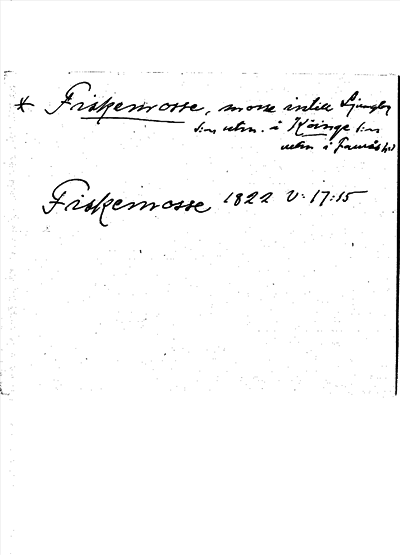 * Fiskemosse, mosse intill Ljungby
sn utm. å Köinge sn
utm i Faurås hd
Fiskemosse 1822 V: 17:15